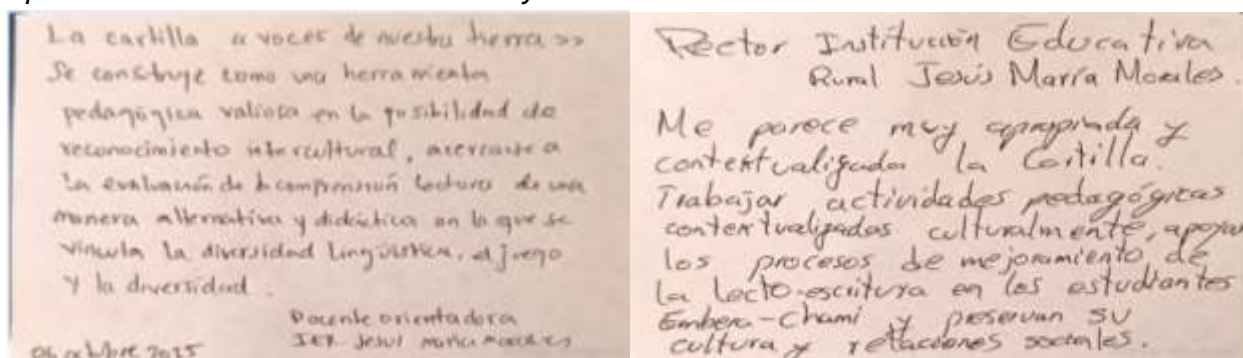 La cartilla « voces de nuestra tierra >>
Se construye como una herramienta
pedagógica valiosa en la posibilidad de
reconocimiento intercultural, acercarse a
la evaluación de la comprensión lectora de una
manera alternativa y didáctica en la que se
vincula la diversidad lingüística, el juego
y la diversidad.
Docente orientadora
IER Jesús María Morales
06 octubre 2025
Rector Institución Educativa
Rural Jesús María Morales.
Me parece muy apropiada y
contextualizada la Cartilla.
Trabajar actividades pedagógicas
contextualizadas culturalmente, apoyan
los procesos de mejoramiento de
la lecto-escritura en los estudiantes
Embera-Chamí y preservan su
cultura y relaciones sociales.